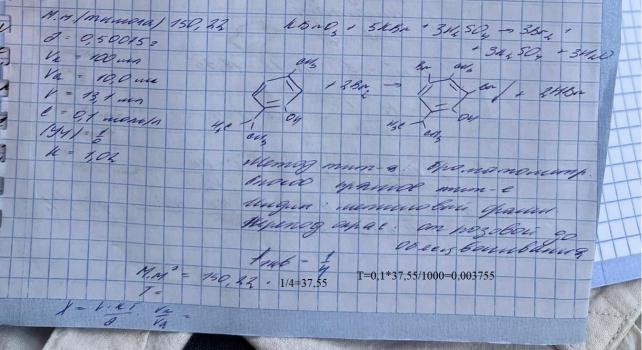 М.м (тимола) 150,22
а = 0,50015г
Vк = 100 мл
Va = 10,0 мл
V = 13,1 мл
c = 0,1 моль/л
(УЧ) = 1/6
K = 1,02
KBrO3 + 5KBr + 3H2SO4 → 3Br2 +
+ 3K2SO4 + 3H2O
CH3
OH
H3C
CH3
+ 2Br2 →
Br
CH3
Br
OH
H3C
CH3
+ 2HBr
Метод тит-я: Броматометр.
Способ прямое тит-е
Индик: метиловый оранж
Переход окрас: от розовой до
обесцвечивания
fэкв = 1/4
М.мэ = 150,22 · 1/4=37,55
T =
T=0,1*37,55/1000=0,003755
X = V·K·T / a · Vк / Va =